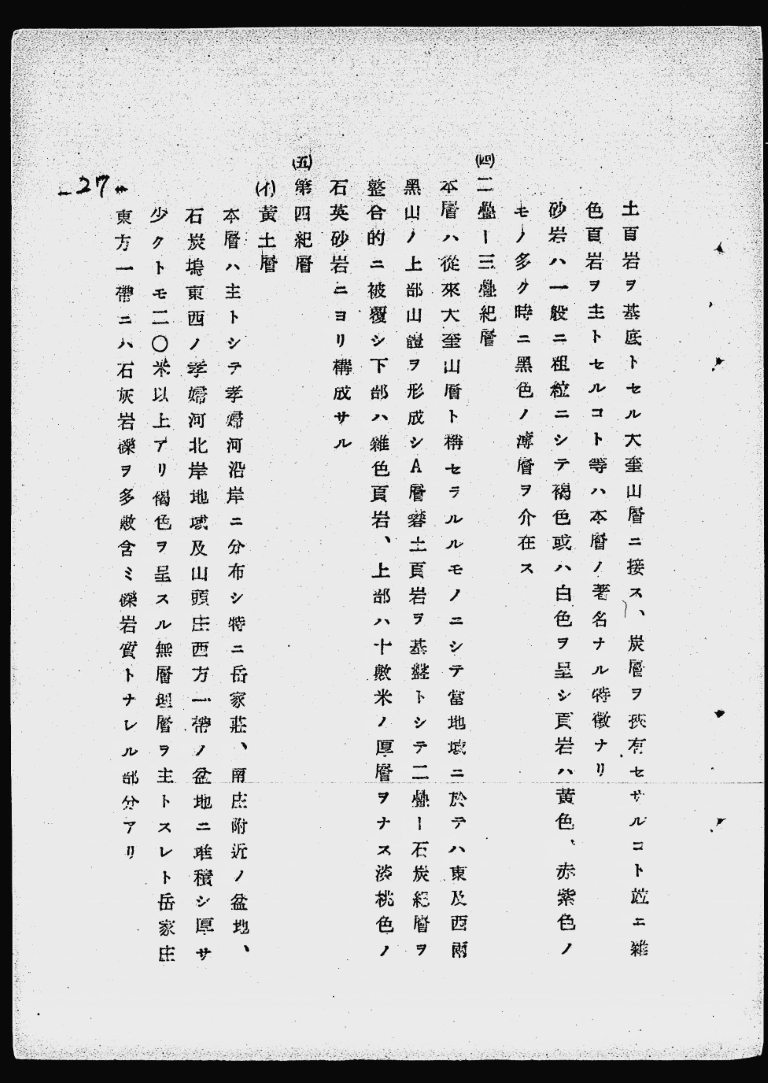 土頁岩ヲ基底トセル大奎山層ニ接ス、炭層ヲ挾有セザルコト竝ニ雜
色頁岩ヲ主トセルコト等ハ本層ノ著名ナル特徵ナリ
砂岩ハ一般ニ粗粒ニシテ褐色或ハ白色ヲ呈シ頁岩ハ黃色、赤紫色ノ
モノ多ク時ニ黑色ノ薄層ヲ介在ス
㈣二疊ー三疊紀層
本層ハ從來大奎山層ト稱セラルルモノニシテ當地域ニ於テハ東及西兩
黑山ノ上部山體ヲ形成シA層礬土頁岩ヲ基盤トシテ二疊ー石炭紀層ヲ
整合的ニ被覆シ下部ハ雜色頁岩、上部ハ十數米ノ厚層ヲナス淡桃色ノ
石英砂岩ニヨリ構成サル
㈤第四紀層
(イ)黃土層
本層ハ主トシテ孝婦河沿岸ニ分布シ特ニ岳家莊、南庄附近ノ盆地、
石炭塢東西ノ孝婦河北岸地域及山頭庄西方一帶ノ盆地ニ堆積シ厚サ
少クトモ二〇米以上アリ褐色ヲ呈スル無層理層ヲ主トスレト岳家庄
東方一帶ニハ石灰岩礫ヲ多數含ミ礫岩質トナレル部分アリ
27